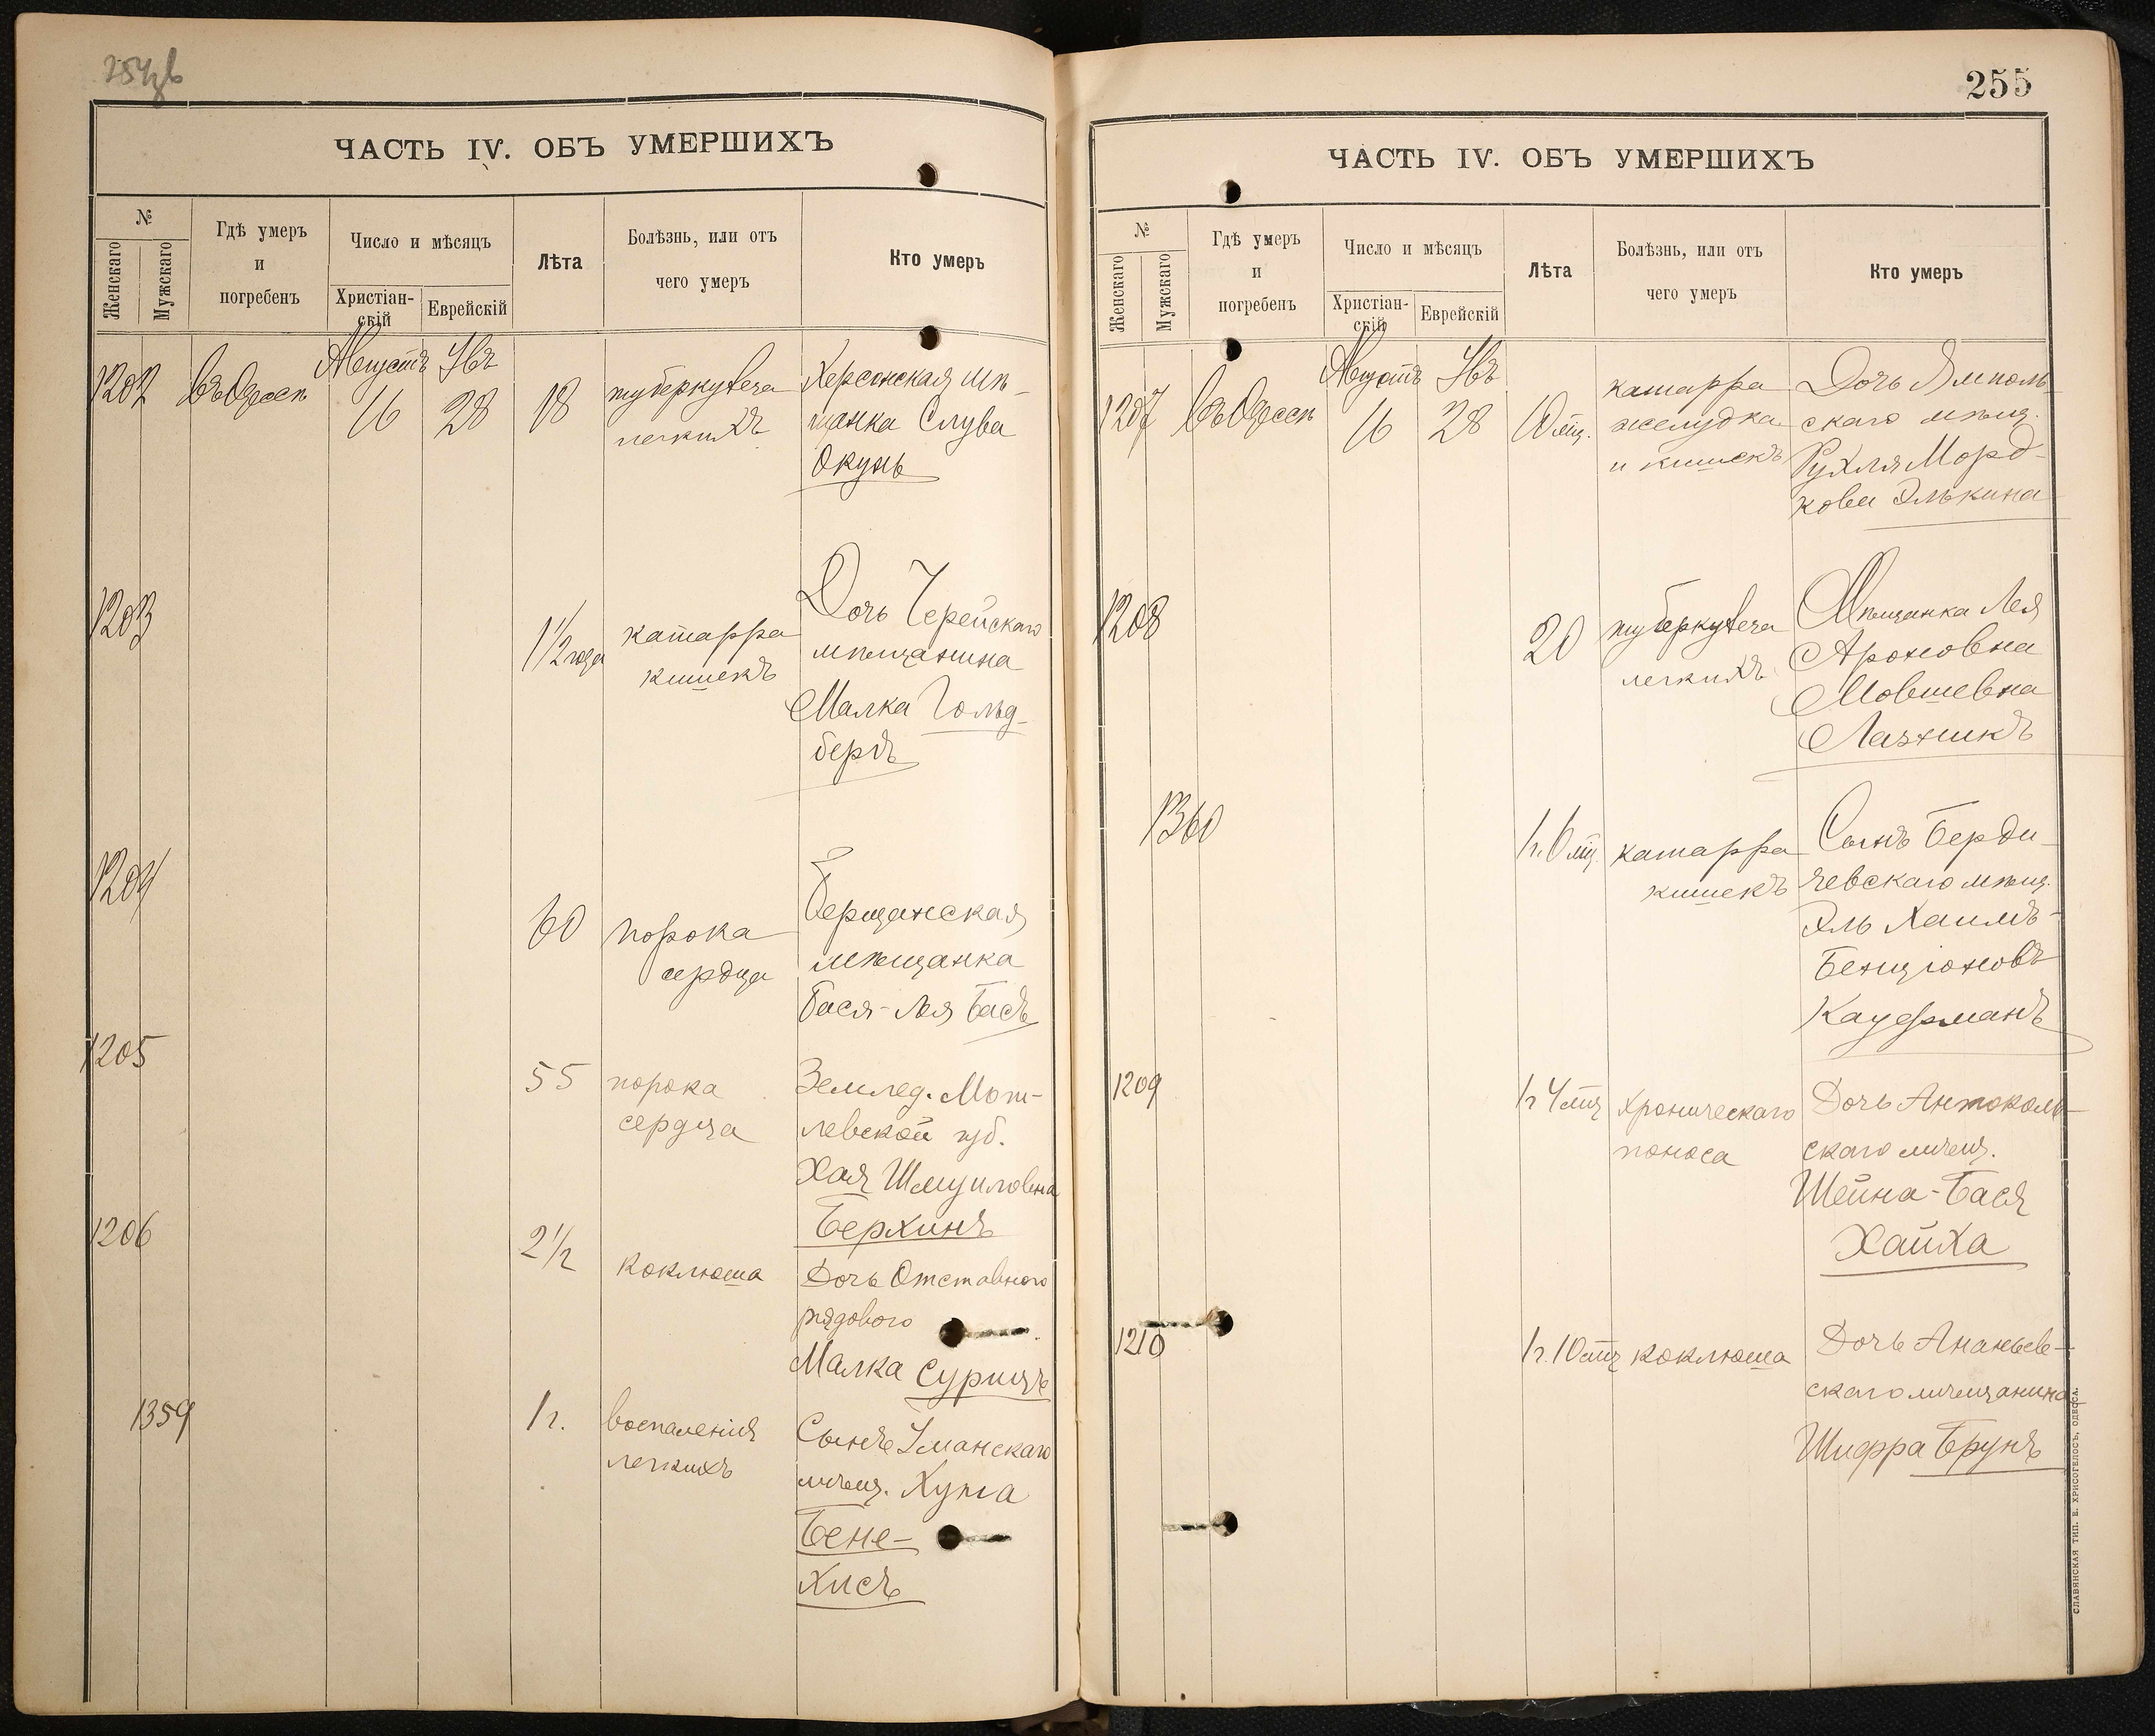 ЧАСТЬ IV. ОБЪ УМЕРШИХЪ
№
Женскаго
Мужскаго
Гдѣ умеръ
и
погребенъ
Число и мѣсяцъ
Христіан-
скій
Еврейскій
Лѣта
Болѣзнь, или отъ
чего умеръ
Кто умеръ
1202
въ Одессѣ
Августъ
16
28
18
туберкулеза
легкихъ
Херсонская мѣ-
щанка Слува
Окунь
1203
1 1/2 года
катарра
кишекъ
Дочь Черейскаго
мѣщанина
Малка Гольд-
бергъ
1204
60
порока
сердца
Бершадская
мѣщанка
Бася-Лея Басъ
1205
55
порока
сердца
Землед. Моги-
левской губ.
Хая Шмуиловна
Берхинъ
1206
2 1/2
коклюша
Дочь Отставного
рядового
Малка Сурицъ
1359
1 г.
воспаленія
легкихъ
Сынъ Уманскаго
мѣщ.
Бене-
хисъ
255
ЧАСТЬ IV. ОБЪ УМЕРШИХЪ
№
Женскаго
Мужскаго
Гдѣ умеръ
и
погребенъ
Число и мѣсяцъ
Христіан-
скій
Еврейскій
Лѣта
Болѣзнь, или отъ
чего умеръ
Кто умеръ
1207
въ Одессѣ
Августъ
16
28
10 мц.
катарра
желудка
и кишекъ
Дочь Ямполь-
скаго мѣщ.
Рухля Морд-
кови Элькина
1208
20
туберкулеза
легкихъ
Мѣщанка Лея
Ароновна
Мовшевна
Лазникъ
1360
1 г. 6 мц.
катарра
кишекъ
Сынъ Берди-
чевскаго мѣщ.
Эль Хаимъ-
Бенціоновъ
Кауфманъ
1209
1 г 4 мц
хроническаго
поноса
Дочь Антоколь-
скаго мѣщ.
Шейна-Бася
Хайха
1210
1 г. 10 мц
коклюша
Дочь Ананьев-
скаго мѣщанина
Шифра Брунъ
СЛАВЯНСКАЯ ТИП. Е. ХРИСОГЕЛОСЪ, ОДЕССА.